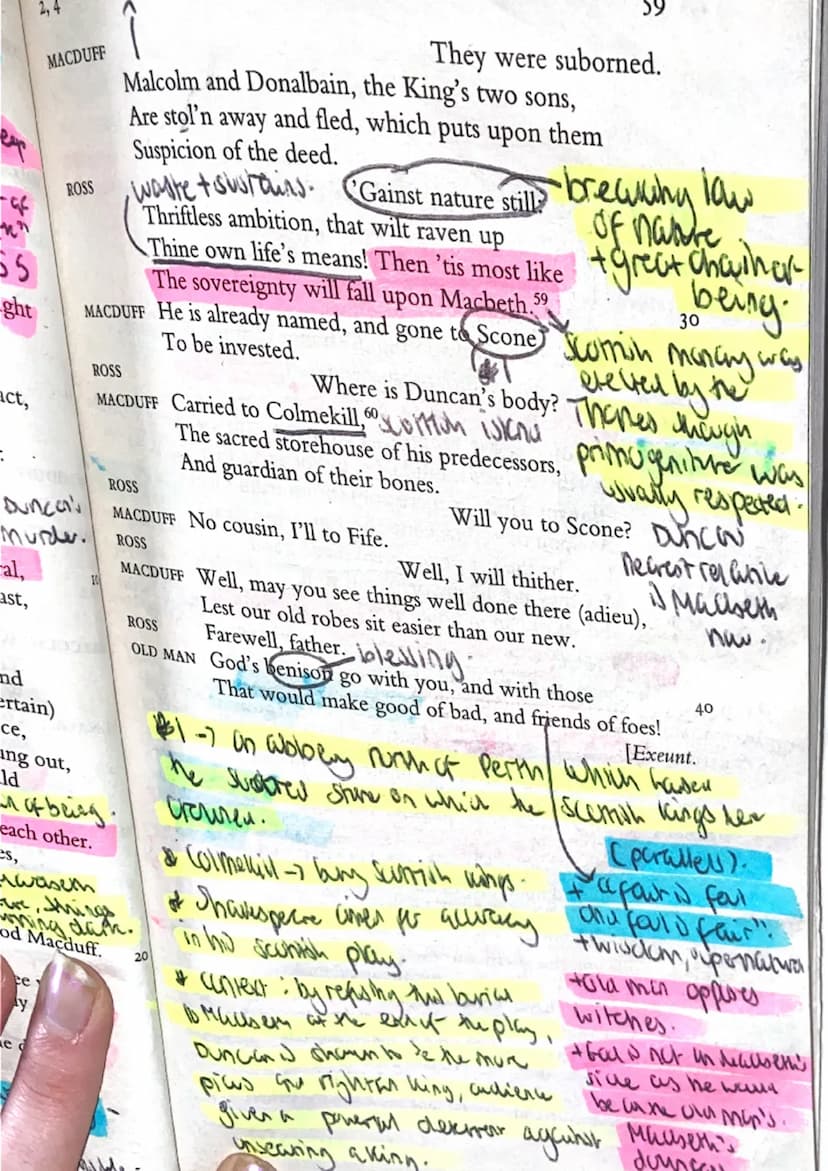 2, 4
59
MACDUFF They were suborned.
Malcolm and Donalbain, the King's two sons,
Are stol'n away and fled, which puts upon them
Suspicion of the deed.
waste + sustains.
ROSS 'Gainst nature still?
Thriftless ambition, that wilt raven up
Thine own life's means! Then 'tis most like
The sovereignty will fall upon Macbeth.59
breaking law
of nature
+ great chain of
being.
30
MACDUFF He is already named, and gone to Scone
To be invested.
*1
Scottish monarchy was
elected by the
Thanes though
primogeniture was
usually respected.
ROSS Where is Duncan's body?
MACDUFF Carried to Colmekill,60
Scottish island
The sacred storehouse of his predecessors,
And guardian of their bones.
ROSS Will you to Scone?
MACDUFF No cousin, I'll to Fife.
ROSS Well, I will thither.
Duncan
nearest relative
is Macbeth
now.
MACDUFF Well, may you see things well done there (adieu),
Lest our old robes sit easier than our new.
ROSS Farewell, father.
blessing.
OLD MAN God's benison go with you, and with those
That would make good of bad, and friends of foes!
40
[Exeunt.
*1 → an abbey north of Perth which housed
the sacred stone on which the Scottish kings were
crowned.
* Colmekill → bury Scottish kings.
* Shakespeare aimed for accuracy
in his Scottish play.
* context: by refusing this burial
to Macbeth at the end of the play,
Duncan is shown to be the more
pious and rightful king, audience
given a powerful deterrent against
unseating a king.
(parallels).
+ "a fair is foul
and foul is fair".
+ wisdom, supernatural
+ old man opposes
witches.
+ God is not on Macbeth's
side as he would
be on the old man's.
Macbeth's
ght
act,
Duncan's
murder.
ral,
10
ast,
nd
ertain)
ce,
ung out,
ld
of being.
each other.
es,
things
dark.
od Macduff.
20